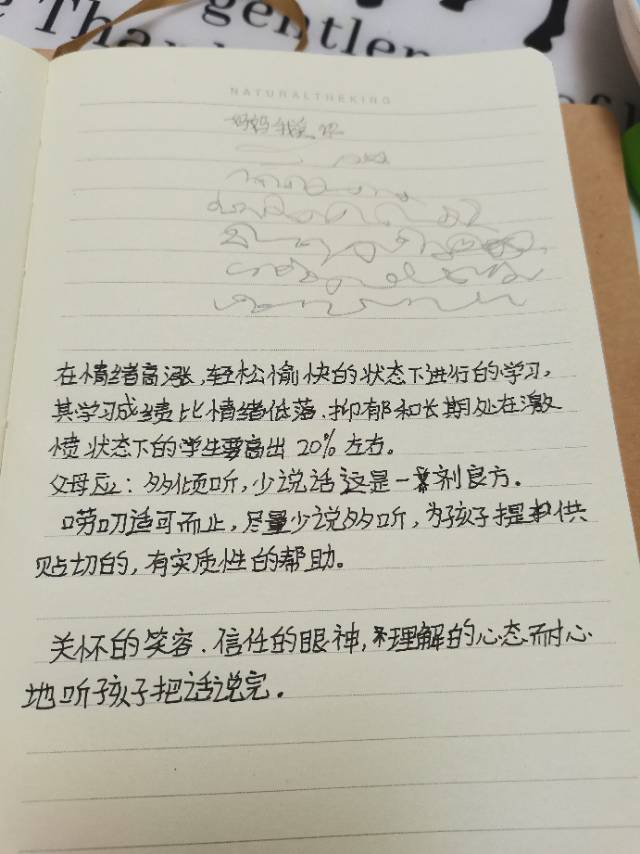 gentlen
NATURALTHEKING
妈妈我爱你
在情绪高涨,轻松愉快的状态下进行的学习,
其学习成绩比情绪低落、抑郁和长期处在激
愤状态下的学生要高出20%左右。
父母应:多倾听,少说话这是一剂良方。
唠叨适可而止,尽量少说多听,为孩子提供
贴切的,有实质性的帮助。
关怀的笑容、信任的眼神,理解的心态耐心
地听孩子把话说完。